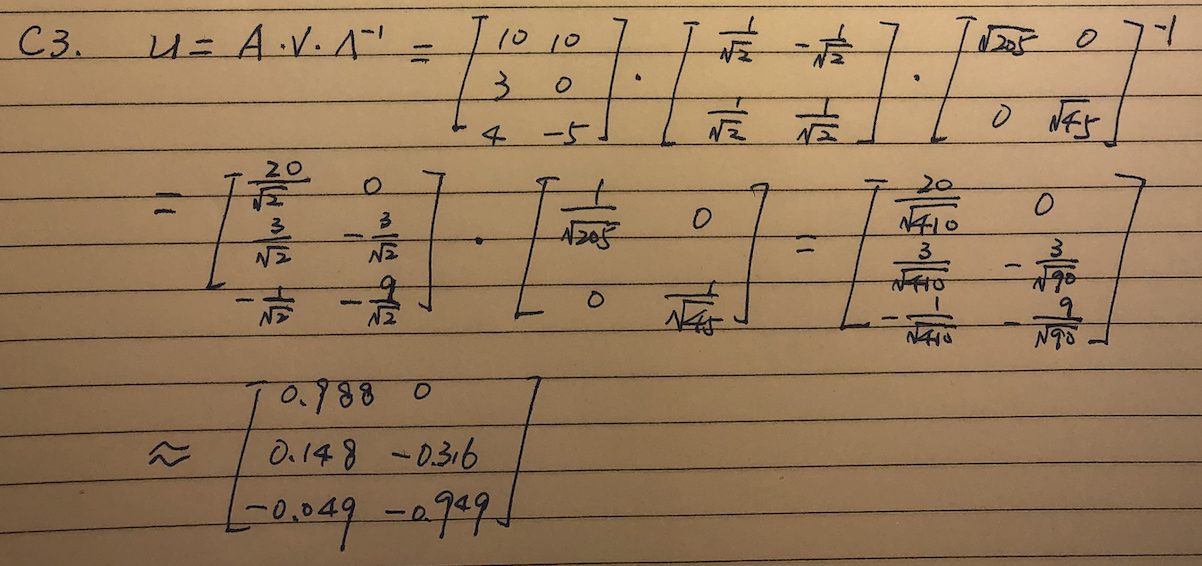 C3. U = A·V·Λ⁻¹ = [10 10; 3 0; 4 -5] · [1/√2 -1/√2; 1/√2 1/√2] · [√205 0; 0 √45]⁻¹
= [20/√2 0; 3/√2 -3/√2; -1/√2 -9/√2] · [1/√205 0; 0 1/√45] = [20/√410 0; 3/√410 -3/√90; -1/√410 -9/√90]
≈ [0.988 0; 0.148 -0.316; -0.049 -0.949]